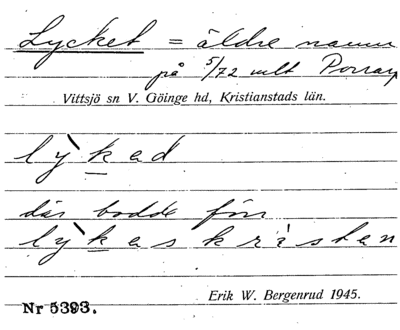 Lycket = äldre namn
på 5/72 mlt Porrarp
Vittsjö sn V. Göinge hd, Kristianstads län.
lỳked
där bodde förr
lỳkaskrìsten
Erik W. Bergenrud 1945.
Nr 5393.